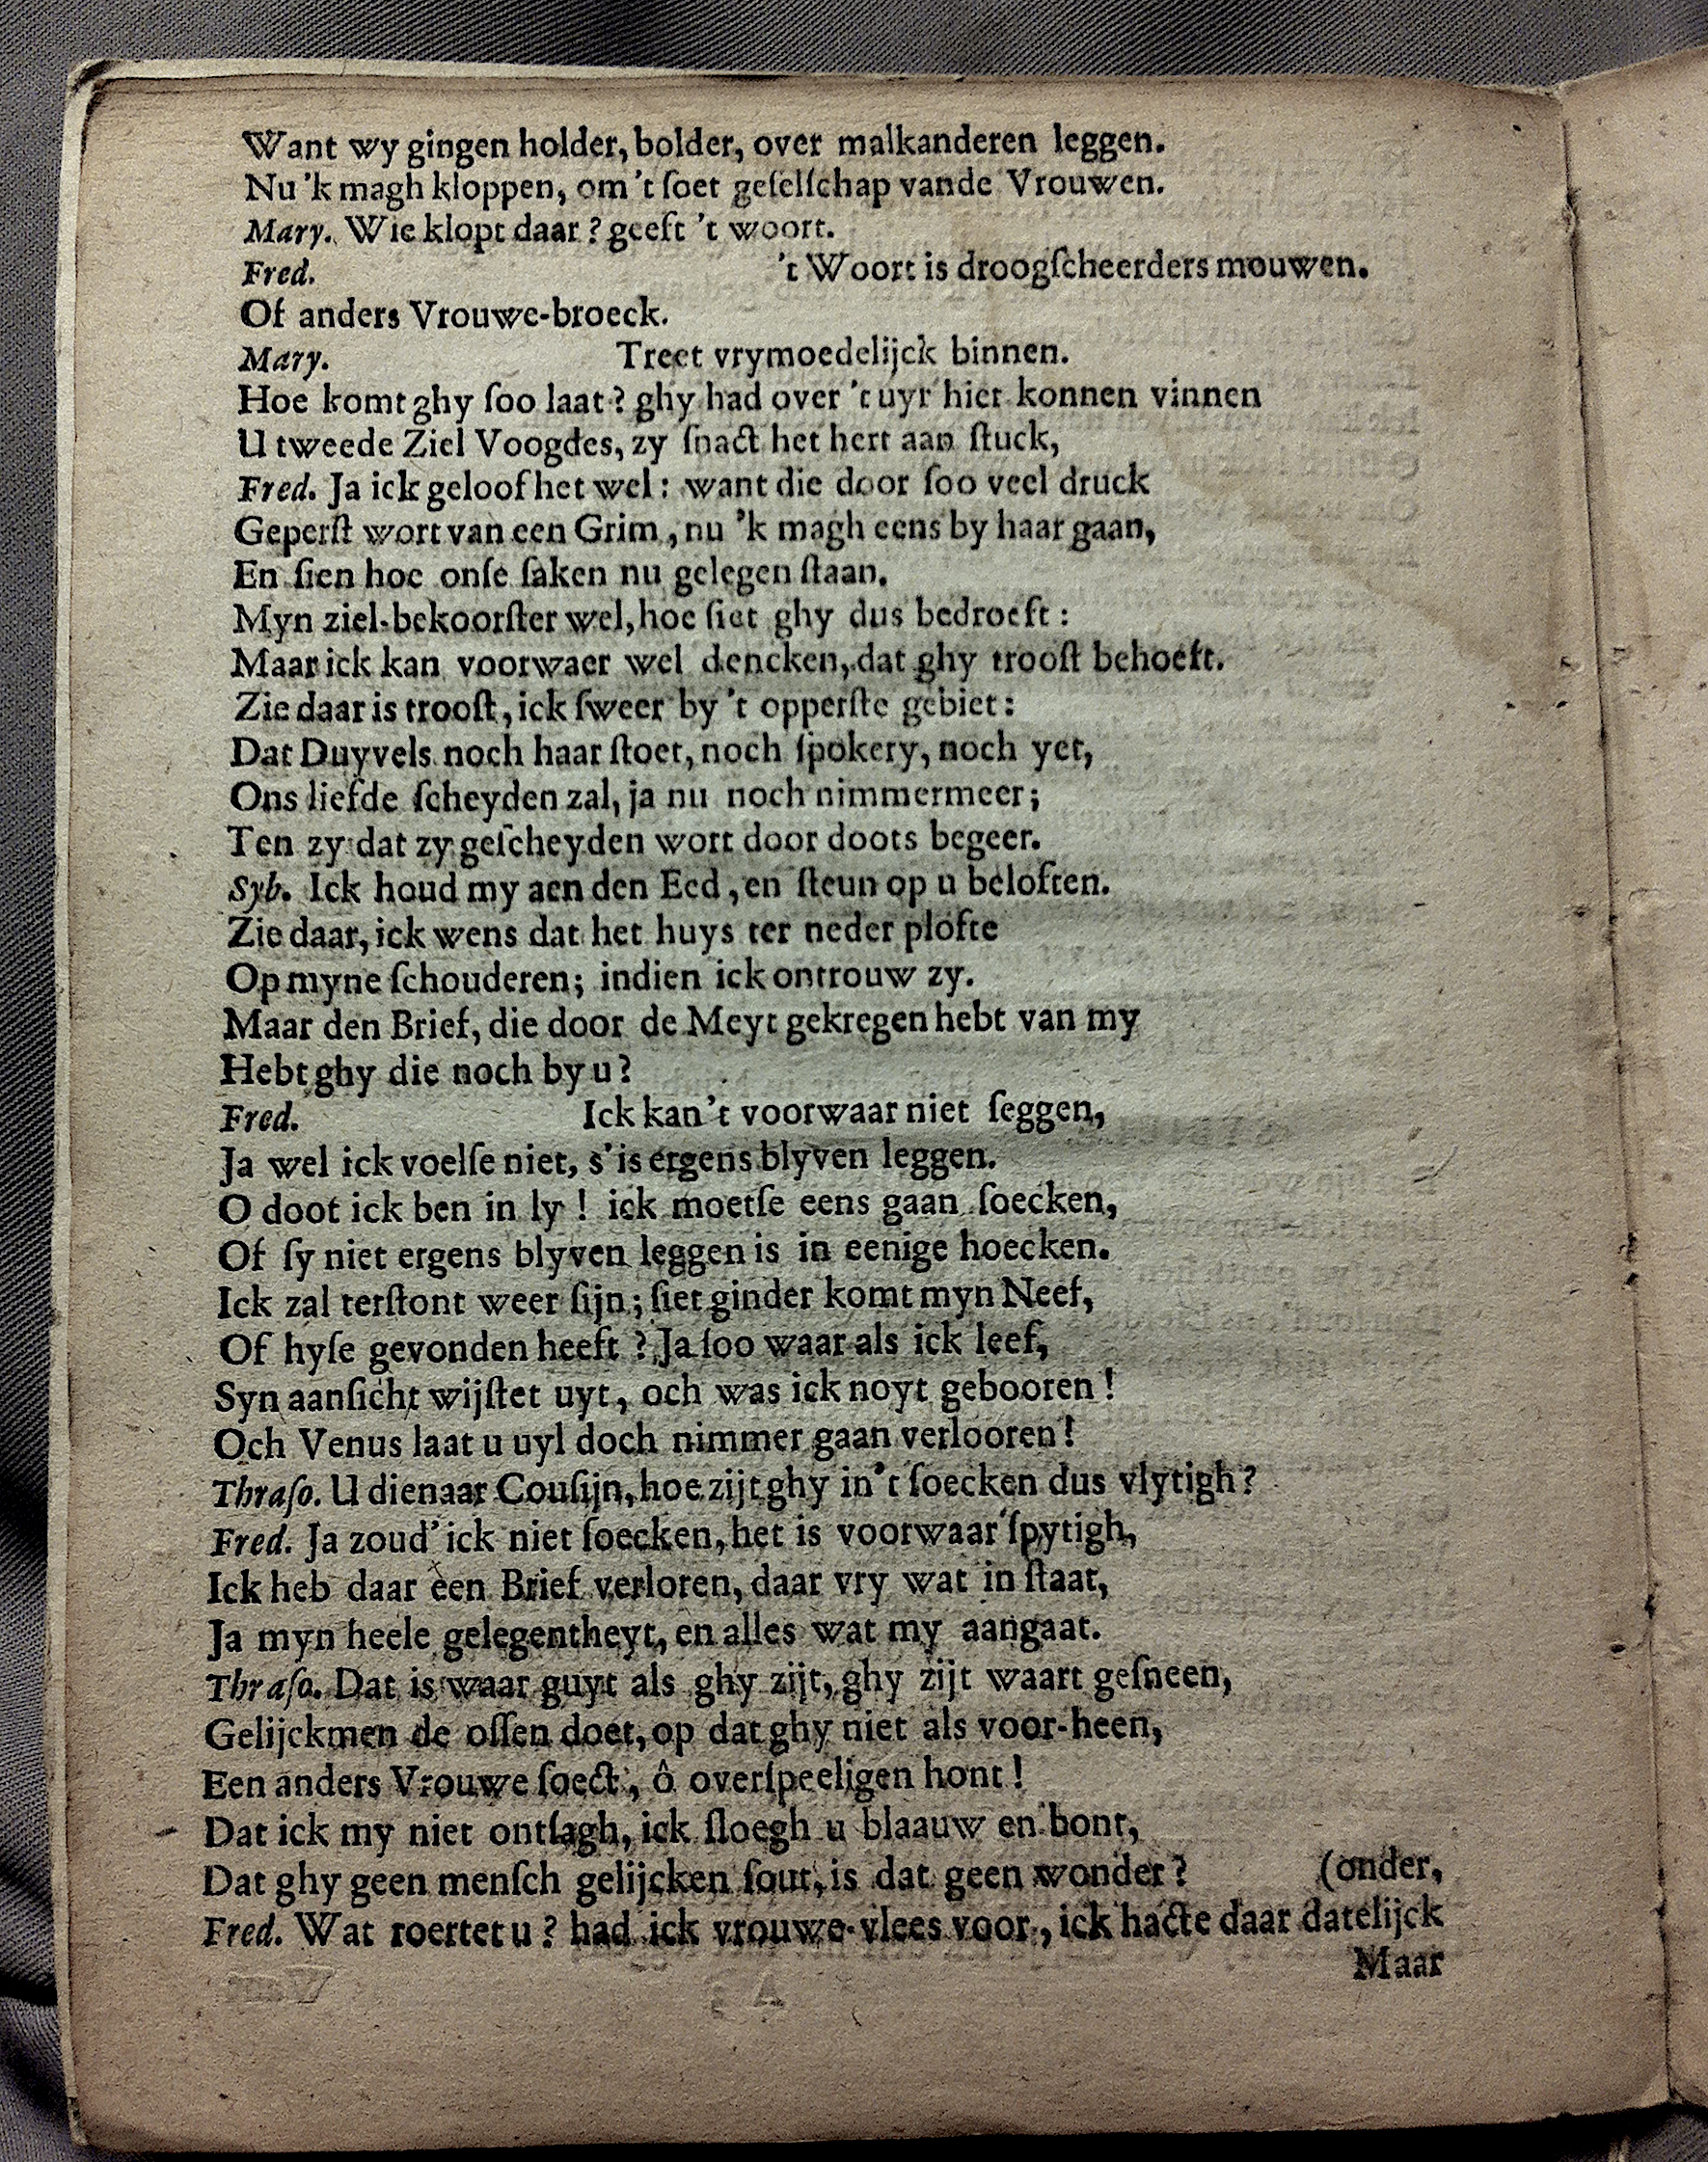 Want wy gingen holder, bolder, over malkanderen leggen.
Nu 'k magh kloppen, om 't ſoet geſelſchap vande Vrouwen.
Mary. Wie klopt daar? geeft 't woort.
Fred. 't Woort is droogſcheerders mouwen.
Of anders Vrouwe-broeck.
Mary. Treet vrymoedelijck binnen.
Hoe komt ghy ſoo laat? ghy had over 't uyr hier konnen vinnen
U tweede Ziel Voogdes, zy ſnact het hert aan ſtuck,
Fred. Ja ick geloof het wel: want die door ſoo veel druck
Geperſt wort van een Grim, nu 'k magh eens by haar gaan,
En ſien hoe onſe ſaken nu gelegen ſtaan.
Myn ziel-bekoorſter wel, hoe ſiet ghy dus bedroeft:
Maar ick kan voorwaer wel dencken, dat ghy trooſt behoeft.
Zie daar is trooſt, ick ſweer by 't opperſte gebiet:
Dat Duyvels noch haar ſtoet, noch ſpokery, noch yet,
Ons liefde ſcheyden zal, ja nu noch nimmermeer;
Ten zy dat zy geſcheyden wort door doots begeer.
Syb. Ick houd my aen den Eed, en ſteun op u beloften.
Zie daar, ick wens dat het huys ter neder plofte
Op myne ſchouderen; indien ick ontrouw zy.
Maar den Brief, die door de Meyt gekregen hebt van my
Hebt ghy die noch by u?
Fred. Ick kan 't voorwaar niet ſeggen,
Ja wel ick voelſe niet, s' is ergens blyven leggen.
O doot ick ben in ly! ick moetſe eens gaan ſoecken,
Of ſy niet ergens blyven leggen is in eenige hoecken.
Ick zal terſtont weer ſijn; ſiet ginder komt myn Neef,
Of hyſe gevonden heeft? Ja ſoo waar als ick leef,
Syn aanſicht wijſtet uyt, och was ick noyt gebooren!
Och Venus laat u uyl doch nimmer gaan verlooren!
Thraſo. U dienaar Couſijn, hoe zijt ghy in 't ſoecken dus vlytigh?
Fred. Ja zoud' ick niet ſoecken, het is voorwaar ſpytigh,
Ick heb daar een Brief verloren, daar vry wat in ſtaat,
Ja myn heele gelegentheyt, en alles wat my aangaat.
Thraſo. Dat is waar guyt als ghy zijt, ghy zijt waart geſneen,
Gelijckmen de oſſen doet, op dat ghy niet als voor-heen,
Een anders Vrouwe ſoect, ô overſpeeligen hont!
Dat ick my niet ontſagh, ick ſloegh u blaauw en bont,
Dat ghy geen menſch gelijcken ſout, is dat geen wonder? (onder,
Fred. Wat roertet u? had ick vrouwe-vlees voor, ick hacte daar datelijck
Maar